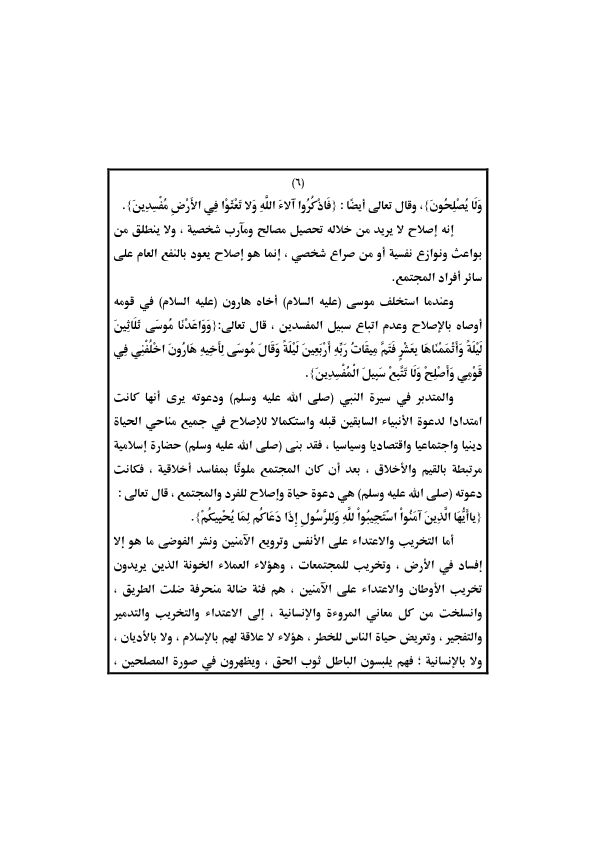 (٦)
وَلَا يُصْلِحُونَ}، وقال تعالى أيضًا : {فَاذْكُرُوا آلاءَ اللَّهِ وَلا تَعْثَوْا فِي الأَرْضِ مُفْسِدِينَ}.
إنه إصلاح لا يريد من خلاله تحصيل مصالح ومآرب شخصية ، ولا ينطلق من
بواعث ونوازع نفسية أو من صراع شخصي ، إنما هو إصلاح يعود بالنفع العام على
سائر أفراد المجتمع.
وعندما استخلف موسى (عليه السلام) أخاه هارون (عليه السلام) في قومه
أوصاه بالإصلاح وعدم اتباع سبيل المفسدين ، قال تعالى:{وَوَاعَدْنَا مُوسَى ثَلَاثِينَ
لَيْلَةً وَأَتْمَمْنَاهَا بِعَشْرٍ فَتَمَّ مِيقَاتُ رَبِّهِ أَرْبَعِينَ لَيْلَةً وَقَالَ مُوسَى لِأَخِيهِ هَارُونَ اخْلُفْنِي فِي
قَوْمِي وَأَصْلِحْ وَلَا تَتَّبِعْ سَبِيلَ الْمُفْسِدِينَ}.
والمتدبر في سيرة النبي (صلى الله عليه وسلم) ودعوته يرى أنها كانت
امتدادا لدعوة الأنبياء السابقين قبله واستكمالا للإصلاح في جميع مناحي الحياة
دينيا واجتماعيا واقتصاديا وسياسيا ، فقد بنى (صلى الله عليه وسلم) حضارة إسلامية
مرتبطة بالقيم والأخلاق ، بعد أن كان المجتمع ملوثًا بمفاسد أخلاقية ، فكانت
دعوته (صلى الله عليه وسلم) هي دعوة حياة وإصلاح للفرد والمجتمع ، قال تعالى :
{ياأَيُّهَا الَّذِينَ آمَنُواْ اسْتَجِيبُواْ للَّهِ وَلِلرَّسُولِ إِذَا دَعَاكُم لِمَا يُحْيِيكُمْ}.
أما التخريب والاعتداء على الأنفس وترويع الآمنين ونشر الفوضى ما هو إلا
إفساد في الأرض ، وتخريب للمجتمعات ، وهؤلاء العملاء الخونة الذين يريدون
تخريب الأوطان والاعتداء على الآمنين ، هم فئة ضالة منحرفة ضلت الطريق ،
وانسلخت من كل معاني المروءة والإنسانية ، إلى الاعتداء والتخريب والتدمير
والتفجير ، وتعريض حياة الناس للخطر ، هؤلاء لا علاقة لهم بالإسلام ، ولا بالأديان ،
ولا بالإنسانية ؛ فهم يلبسون الباطل ثوب الحق ، ويظهرون في صورة المصلحين ،